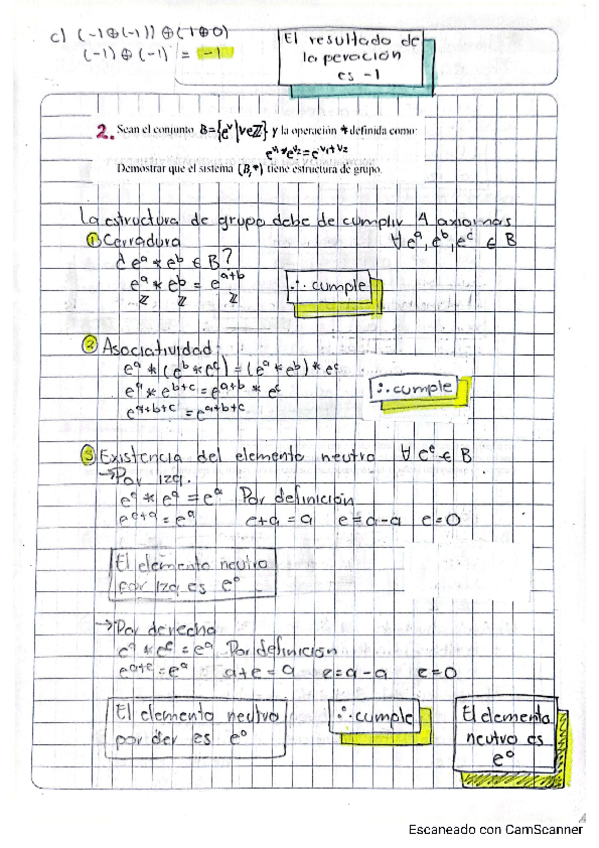 c) (-1⊕(-1)) ⊕ (-1⊕0)
(-1) ⊕ (-1) = -1
El resultado de
la peración
es -1
2. Sean el conjunto B={e^v|v∈Z} y la operación * definida como:
e^v1 * e^v2 = e^v1+v2
Demostrar que el sistema (B,*) tiene estructura de grupo.
La estructura de grupo debe de cumplir 4 axiomas
① Cerradura ∀ e^a, e^b, e^c ∈ B
¿ e^a * e^b ∈ B?
e^a * e^b = e^a+b
Z Z Z
∴ cumple
② Asociatividad
e^a * (e^b * e^c) = (e^a * e^b) * e^c
e^a * e^b+c = e^a+b * e^c
e^a+b+c = e^a+b+c
∴ cumple
③ Existencia del elemento neutro ∀ e^e ∈ B
→ Por izq.
e^e * e^a = e^a Por definición
e^e+a = e^a e+a = a e=a-a e=0
El elemento neutro
por izq es e^0
→ Por derecha
e^a * e^e = e^a Por definición
e^a+e = e^a a+e = a e=a-a e=0
El elemento neutro
por der es e^0
∴ cumple
El elemento
neutro es
e^0
Escaneado con CamScanner